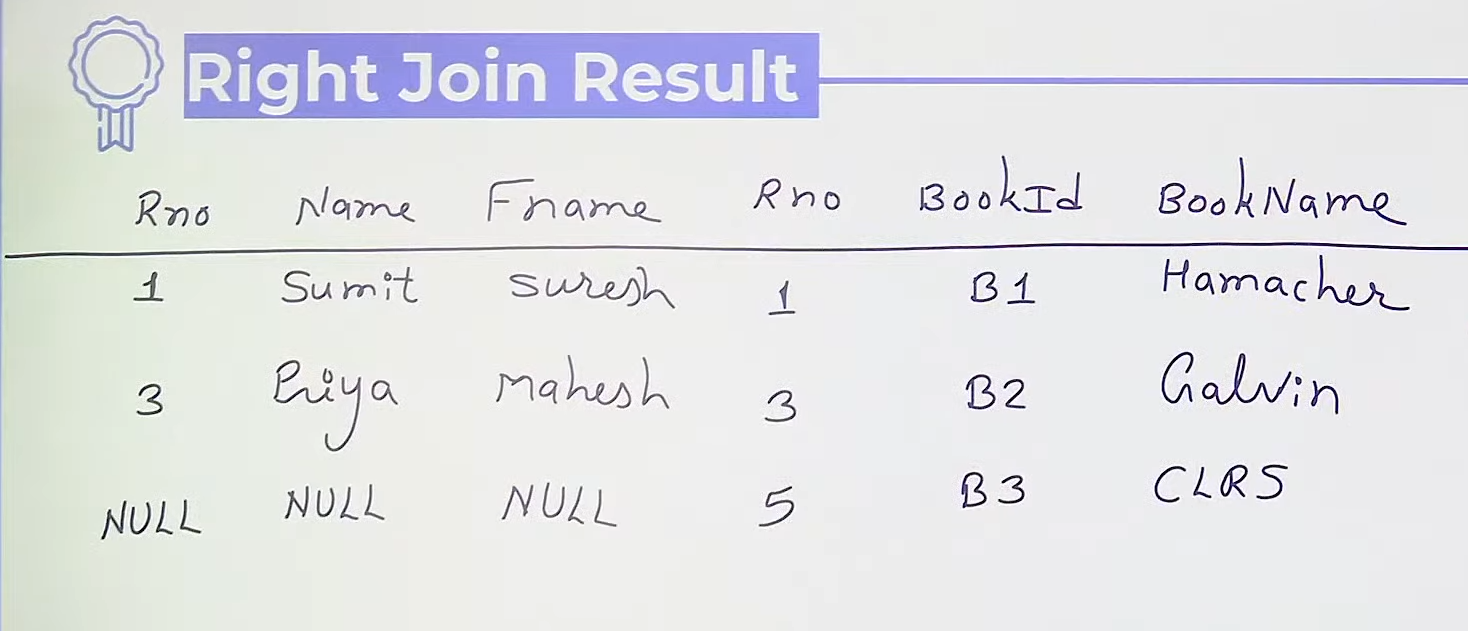 Right Join Result
Rno Name Fname Rno BookId BookName
1 Sumit Suresh 1 B1 Hamacher
3 Priya Mahesh 3 B2 Galvin
NULL NULL NULL 5 B3 CLRS